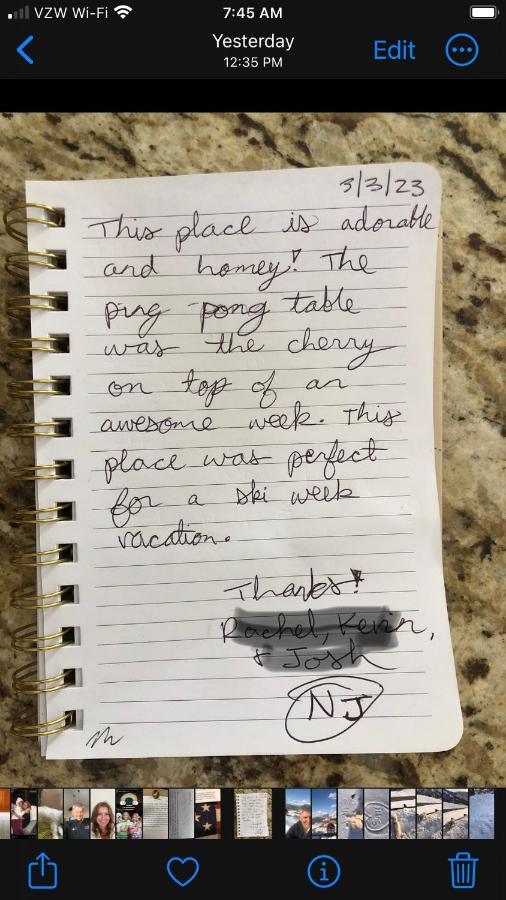 VZW Wi-Fi 7:45 AM
Yesterday
12:35 PM
Edit
3/3/23
This place is adorable
and homey! The
ping pong table
was the cherry
on top of an
awesome week. This
place was perfect
for a ski week
vacation.
Thanks!
Rachel, Kevin,
& Josh
NJ